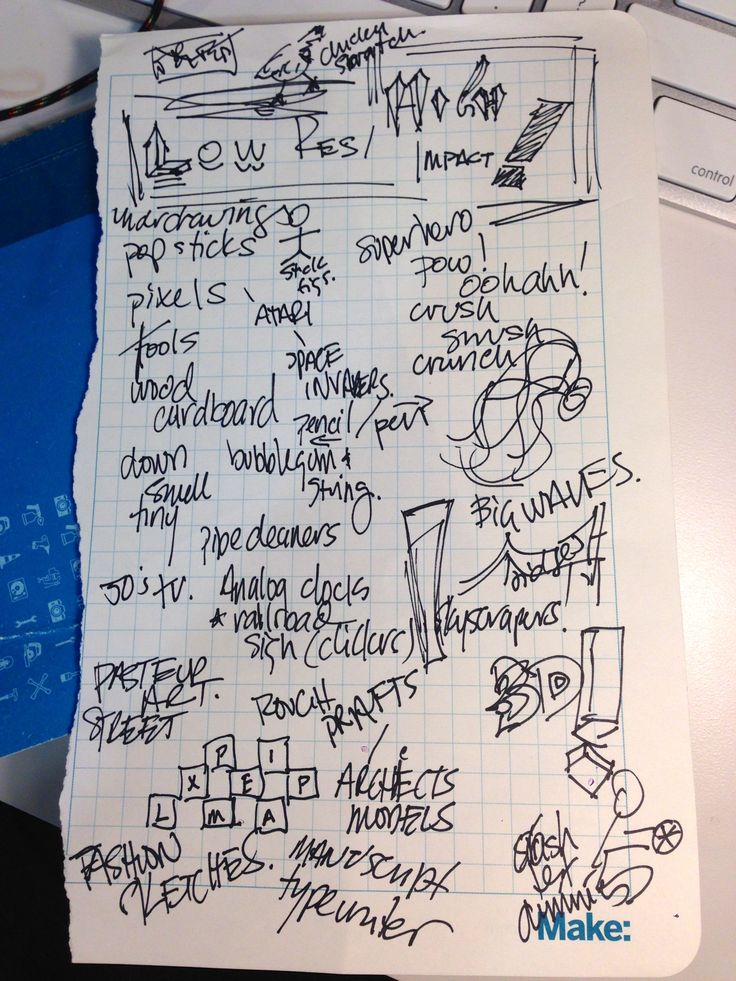 chicken
scratch
LOW RES / High
IMPACT
underdrawings
pop sticks
stick
figs.
pixels \
ATARI
\
SPACE
INVADERS.
tools
wood
cardboard
pencil / pen
down
small
tiny
bubblegum &
string.
pipe cleaners
50's tv. Analog clocks
* railroad
sign (clickers)
PASTEUR
ART.
STREET
ROUGH
DRAFTS
/
P I
X E P
L M A
ARCHITECTS
MODELS
FASHION
SKETCHES.
MANUSCRIPT
typewriter
superhero
pow!
oohahh!
crush
smush
crunch
BIG WAVES.
bridges
skyscrapers!
3D!
crash
test
dummies
Make:
control